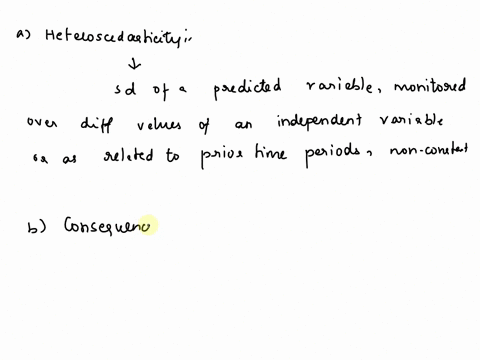 a) Heteroscedasticity:-
↓
sd of a predicted variable, monitored
over diff values of an independent variable
or as related to prior time periods, non-constant
b) Consequenc